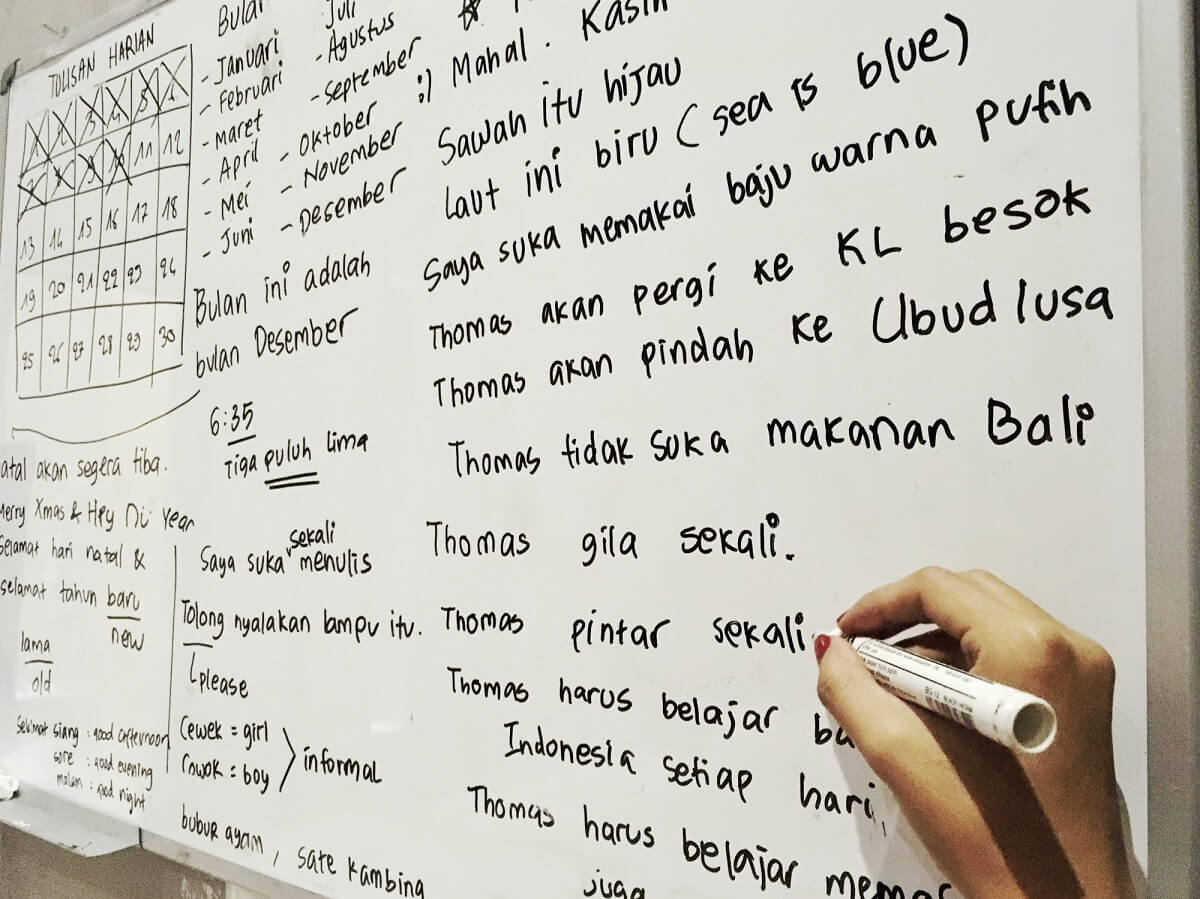 TULISAN HARIAN
1 2 3 4 5 6
7 8 9 10 11 12
13 14 15 16 17 18
19 20 21 22 23 24
25 26 27 28 29 30
Bulan
- Januari
- Februari
- maret
- April
- Mei
- Juni
Juli
- Agustus
- September
- Oktober
- November
- Desember
Bulan ini adalah
bulan Desember
6:35
Tiga puluh lima
atal akan segera tiba.
Merry Xmas & Hpy Ni Year
Selamat hari natal &
selamat tahun baru
new
lama
old
Selamat siang : good afternoon
sore : good evening
malam : good night
Saya suka sekali menulis
Tolong nyalakan lampu itu.
please
Cewek = girl
Cowok = boy
informal
bubur ayam, sate kambing
:) Mahal. Kasih
Sawah itu hijau
Laut ini biru (sea is blue)
Saya suka memakai baju warna putih
Thomas akan pergi ke KL besok
Thomas akan pindah ke Ubud lusa
Thomas tidak suka makanan Bali
Thomas gila sekali.
Thomas pintar sekali.
Thomas harus belajar ba
Indonesia setiap hari,
Thomas harus belajar memas
juga